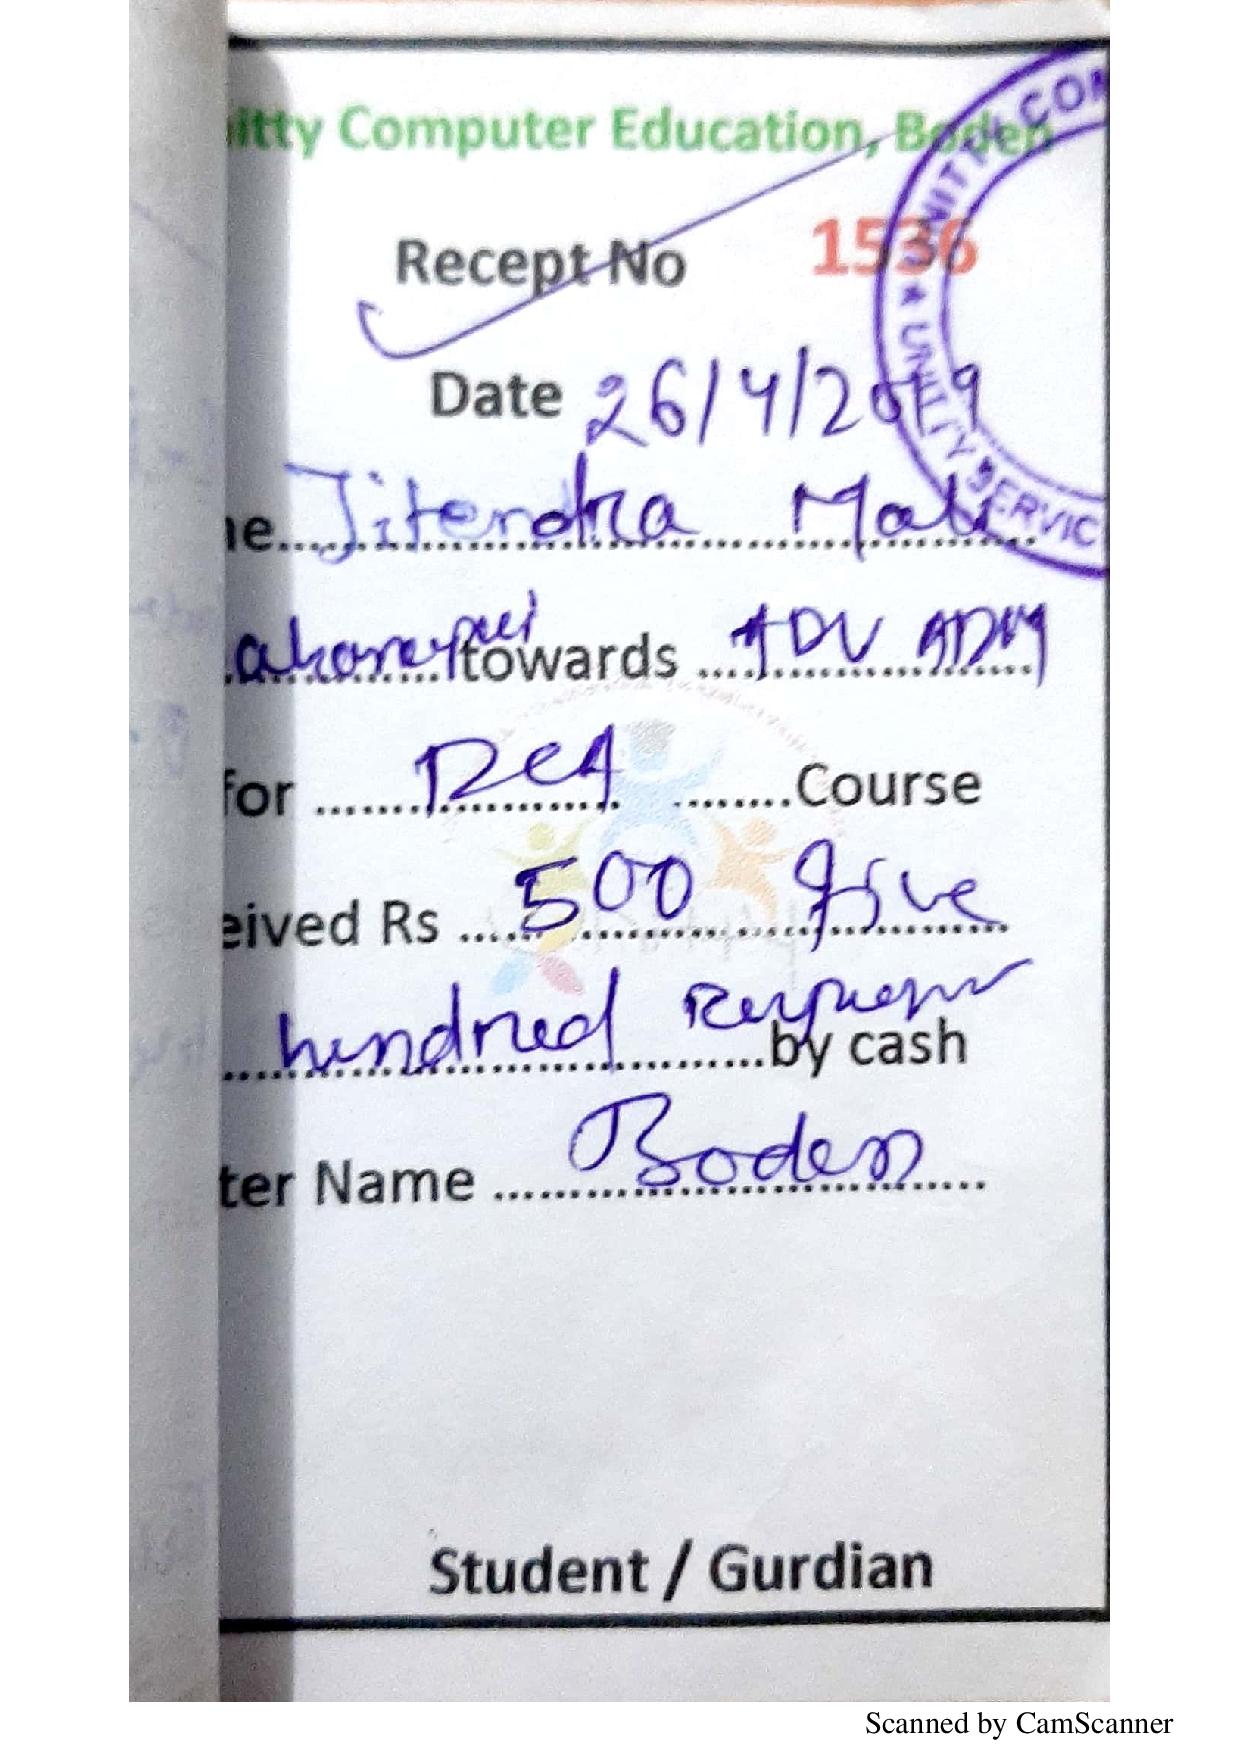 itty Computer Education, Boden
Recept No 1536
Date 26/4/2019
me Jitendra Mali
towards ADV ADM
for DCA Course
eived Rs 500 five
hundred by cash
ter Name Boden
Student / Gurdian
UNITTY COM
★ UNITY SERVIC
Scanned by CamScanner